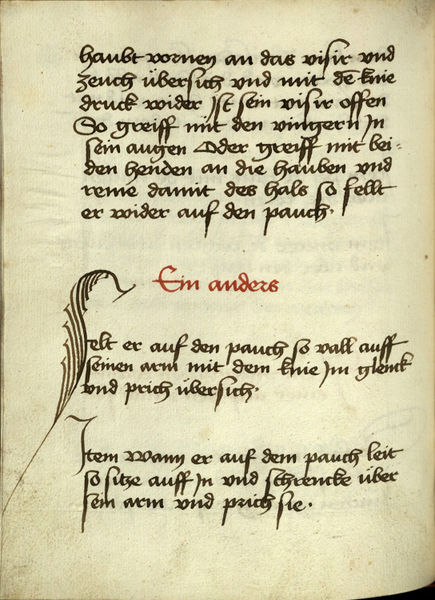 haubt vornen an das visir vnd
zeuch übersich vnd mit dē knie
druck wider Ist sein visir offen
So greiff mit den vingern In
sein augen Oder greiff mit bei-
den henden an die hauben vnd
reme damit des hals so fellt
er wider auf den pauch.
Ein anders
Felt er auf den pauch so vall auff
seinen arm mit dem knie Im glenck
vnd prich übersich.
Item wann er auf dem pauch leit
so sitze auff In vnd schrencke über
sein arm vnd prich sie.